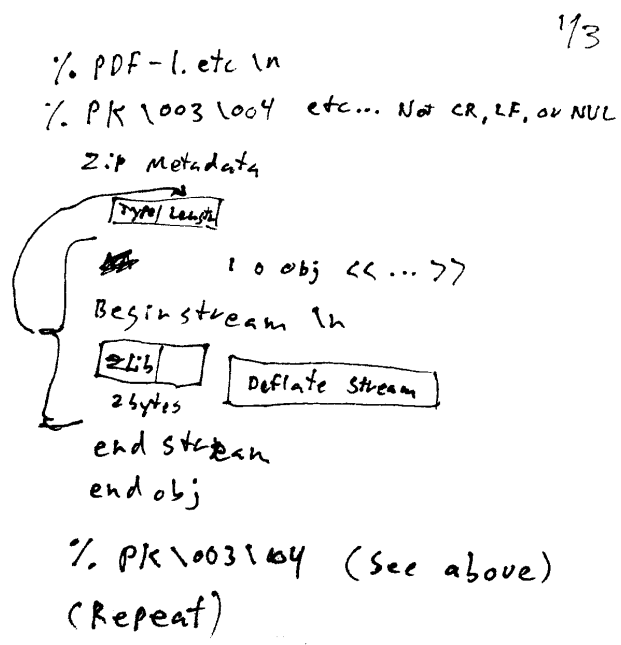 1/3
% PDF-1. etc \n
% PK \003 \004 etc... Not CR, LF, or NUL
Zip Metadata
Type/ Length
1 0 obj << ... >>
Begin stream \n
ZLib
Deflate Stream
2 bytes
end stream
end obj
% PK\003\004 (See above)
(Repeat)